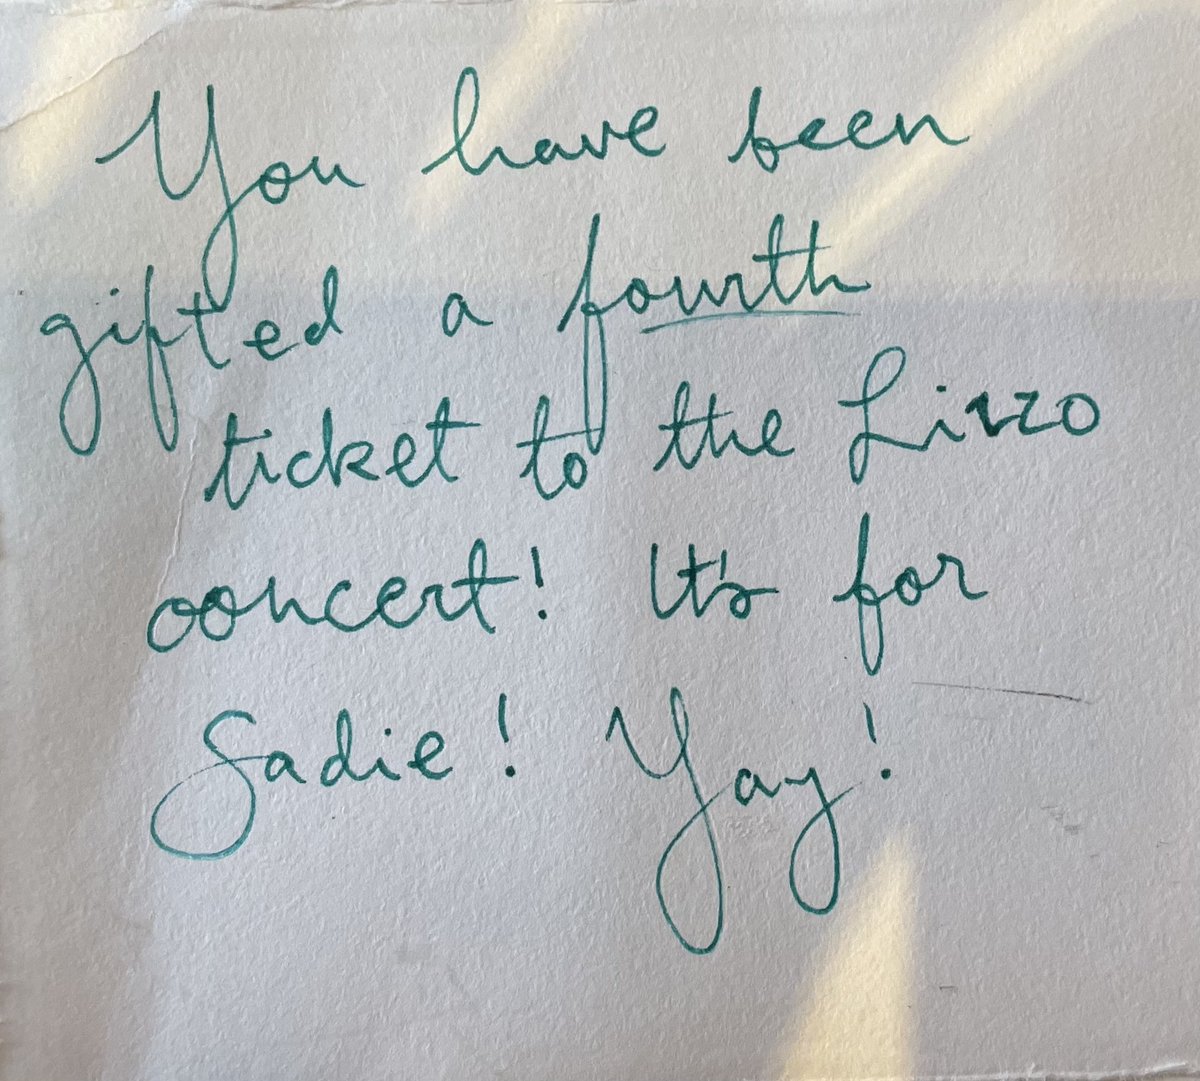 You have been
gifted a fourth
ticket to the Lizzo
concert! It's for
Sadie! Yay!